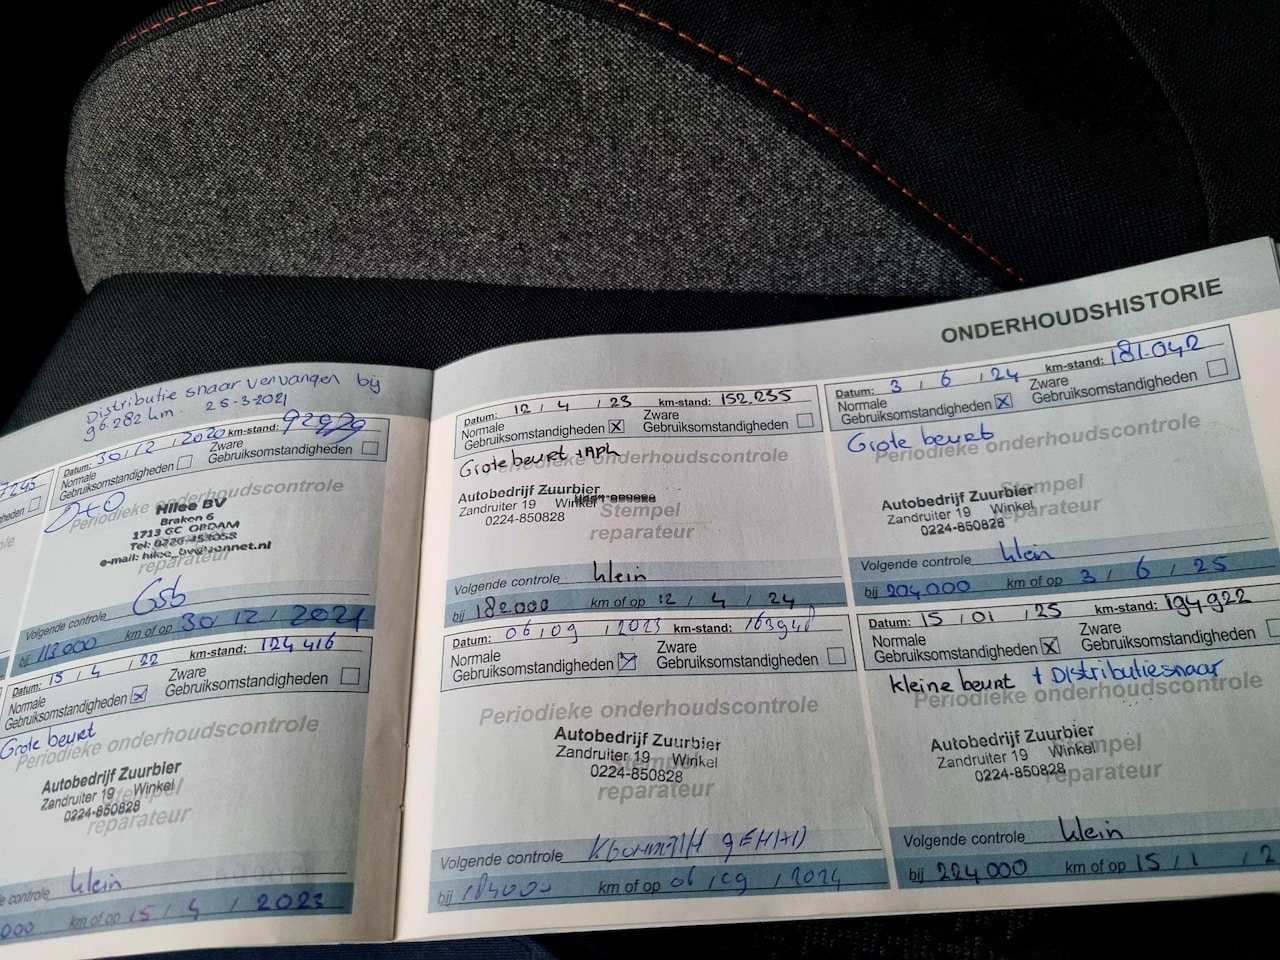 Distributie snaar vervangen bij
96.282 km. 25-3-2021
Datum: 30 / 12 / 2020 km-stand:
Normale Gebruiksomstandigheden
Zware Gebruiksomstandigheden
Periodieke onderhoudscontrole
Hilee BV
Braken 6
1713 GC OBDAM
reparateur
Volgende controle
bij 112000 km of op 30 / 12 / 2021
Datum: 15 / 4 / 22 km-stand: 124 416
Normale Gebruiksomstandigheden
Zware Gebruiksomstandigheden
Grote beurt
Periodieke onderhoudscontrole
Autobedrijf Zuurbier
Zandruiter 19 Winkel
0224-850828
Stempel
reparateur
controle klein
000 km of op 15 / 4 / 2023
ONDERHOUDSHISTORIE
Datum: 12 / 4 / 23 km-stand: 152.235
Normale Gebruiksomstandigheden
Zware Gebruiksomstandigheden
Grote beurt + Apk
Periodieke onderhoudscontrole
Autobedrijf Zuurbier
Zandruiter 19 Winkel
0224-850828
Stempel
reparateur
Volgende controle klein
bij 182.000 km of op 12 / 4 / 24
Datum: 06 / 09 / 2023 km-stand:
Normale Gebruiksomstandigheden
Zware Gebruiksomstandigheden
Periodieke onderhoudscontrole
Autobedrijf Zuurbier
Zandruiter 19 Winkel
0224-850828
Stempel
reparateur
Volgende controle
bij km of op 06 / 09 / 2024
Datum: 3 / 6 / 24 km-stand: 181.042
Normale Gebruiksomstandigheden
Zware Gebruiksomstandigheden
Grote beurt
Periodieke onderhoudscontrole
Autobedrijf Zuurbier
Zandruiter 19 Winkel
0224-850828
Stempel
reparateur
Volgende controle klein
bij 204.000 km of op 3 / 6 / 25
Datum: 15 / 01 / 25 km-stand: 194922
Normale Gebruiksomstandigheden
Zware Gebruiksomstandigheden
kleine beurt + Distributiesnaar
Periodieke onderhoudscontrole
Autobedrijf Zuurbier
Zandruiter 19 Winkel
0224-850828
Stempel
reparateur
Volgende controle klein
bij 224000 km of op 15 / 1 / 2